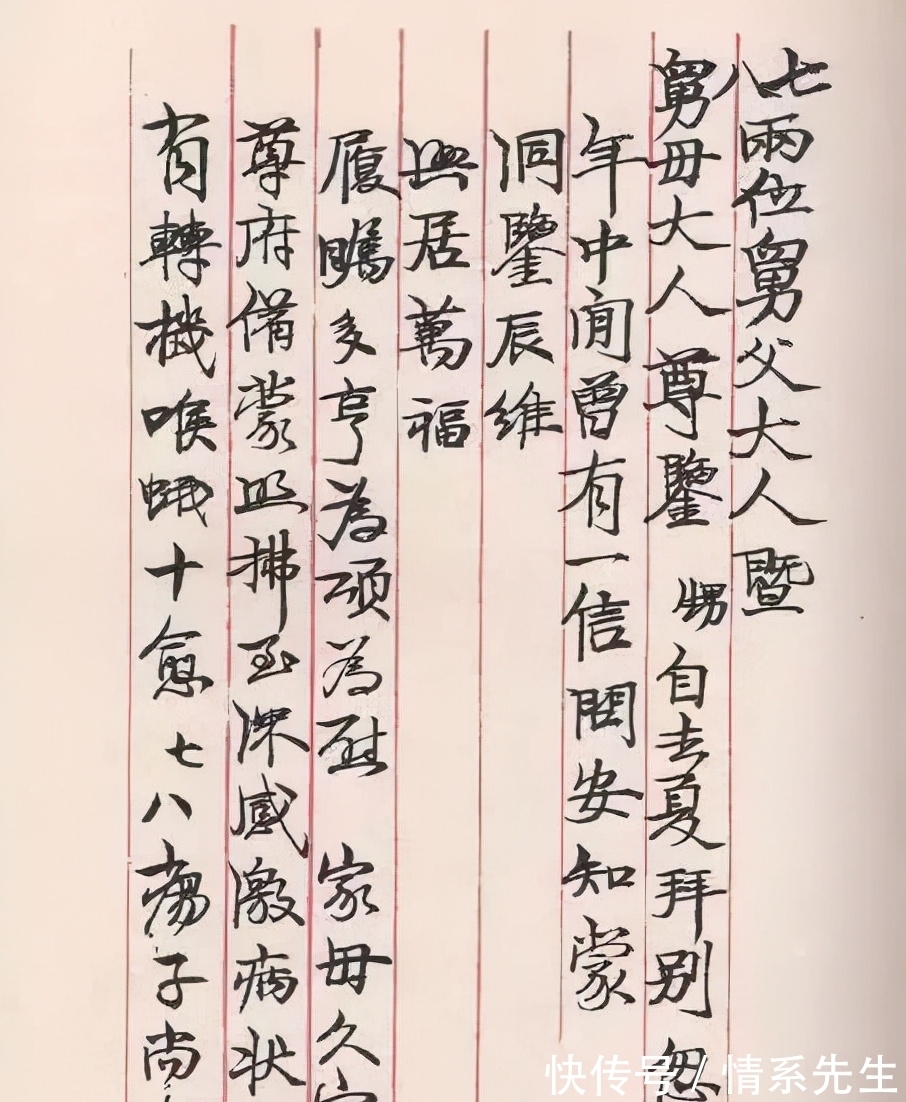 七八兩位舅父大人暨
舅母大人尊鑒 甥自去夏拜别忽
年中间曾有一信問安知蒙
洞鑒辰維
興居萬福
履 多亨為頌為慰 家母久
尊府備蒙照拂至深感激病状
有轉機喉蛾十愈七八瘍子尚
快传号 / 情系先生